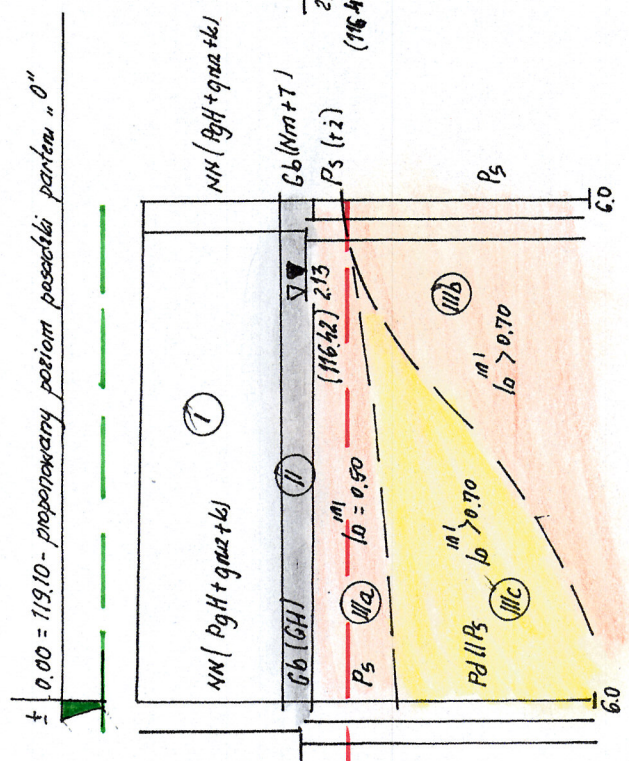 ± 0.00 = 119.10 - proponowany poziom posadzki parteru „0"
NN (PgH+gruz+k)
NN (PgH+gruz+k)
I
Gb (GH)
II
Gb (Nm+T)
2.13
(116.42)
Ps (+ż)
Ps
IIIa
ID(n) = 0.50
Pd//Ps
IIIc
ID(n) > 0.70
IIIb
ID(n) > 0.70
Ps
6.0
6.0
2
(116.4